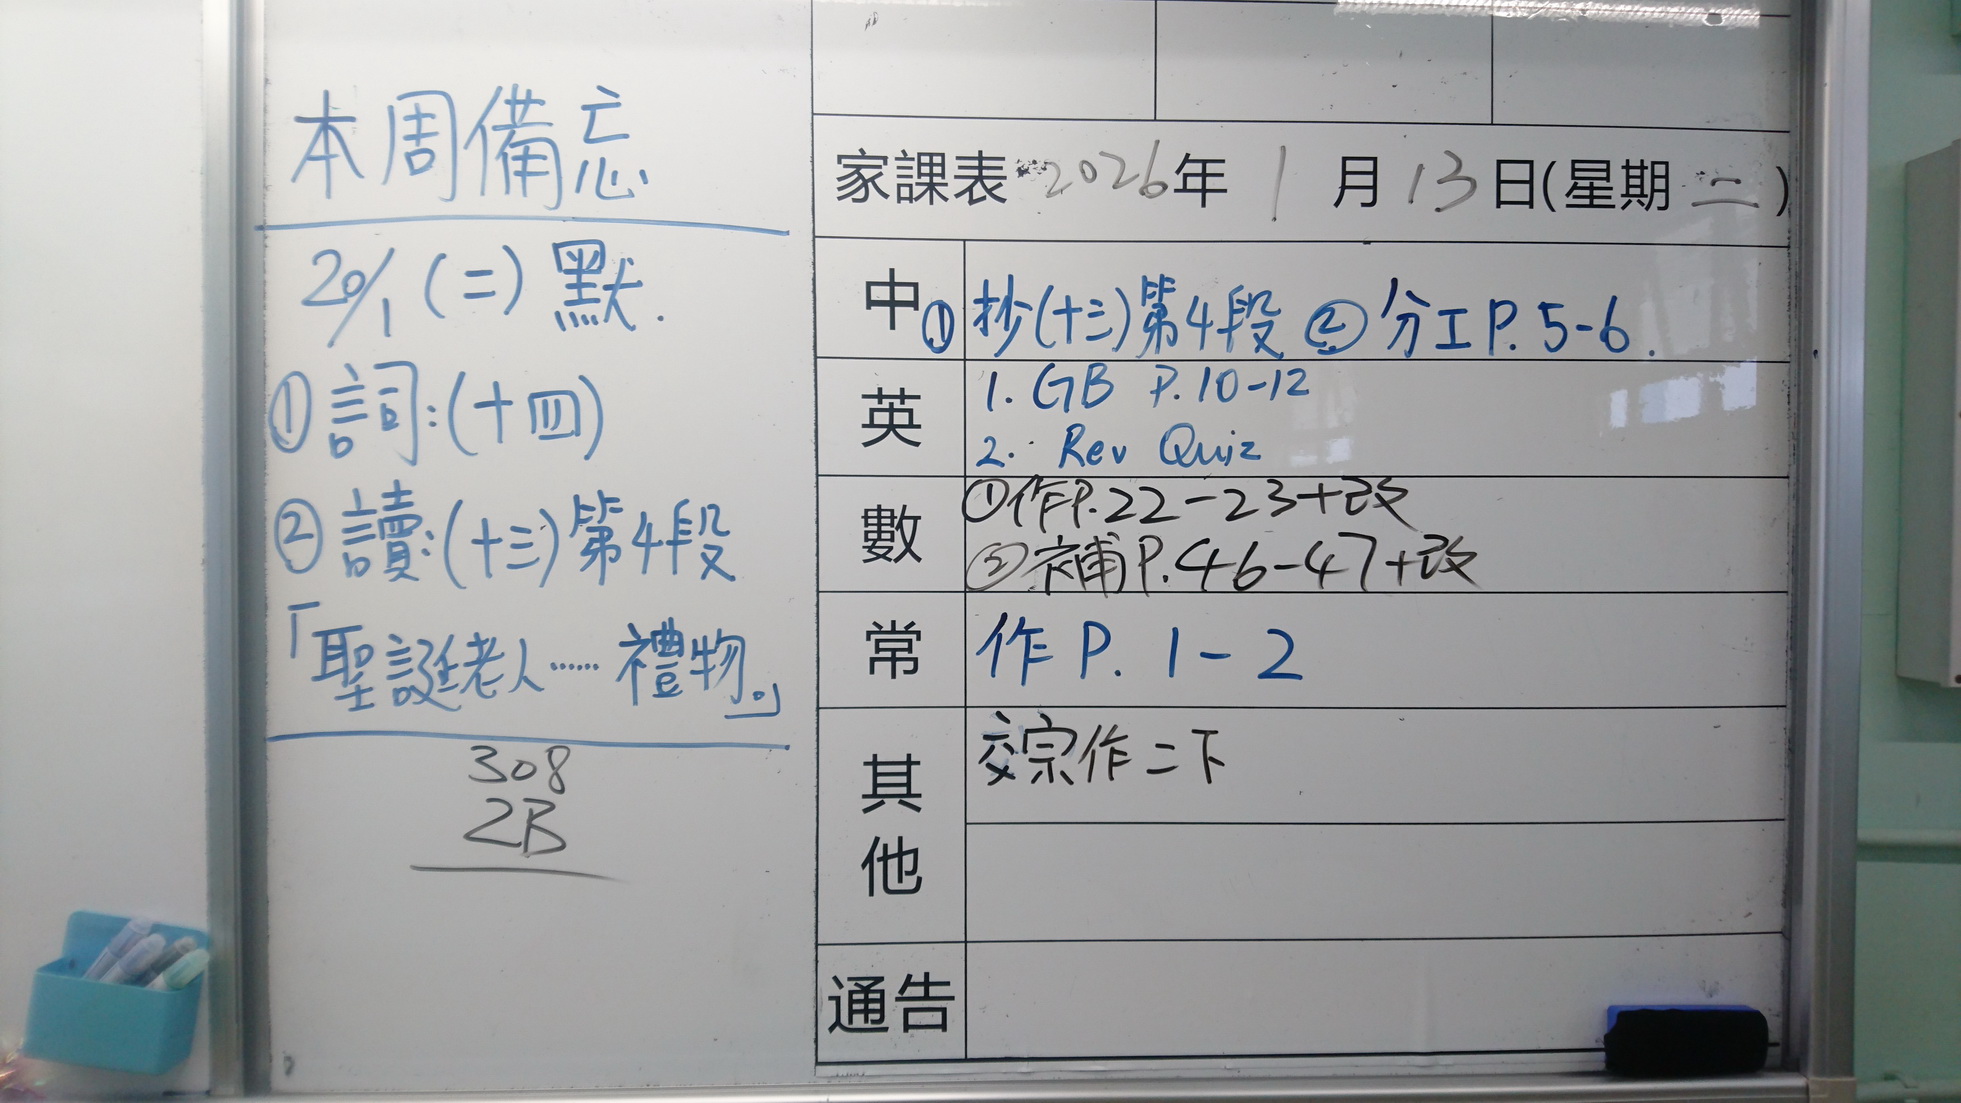 本周備忘
20/1 (二) 默.
① 詞:(十四)
② 讀:(十三)第4段
「聖誕老人……禮物。」
308
2B
家課表 2026年 1 月 13 日(星期 二)
中 ① 抄(十三)第4段 ② 分工 P. 5-6.
英 1. GB P. 10-12
2. Rev Quiz
數 ①作P.22-23+改
②補P.46-47+改
常 作 P. 1-2
其他 交宗作二下
通告